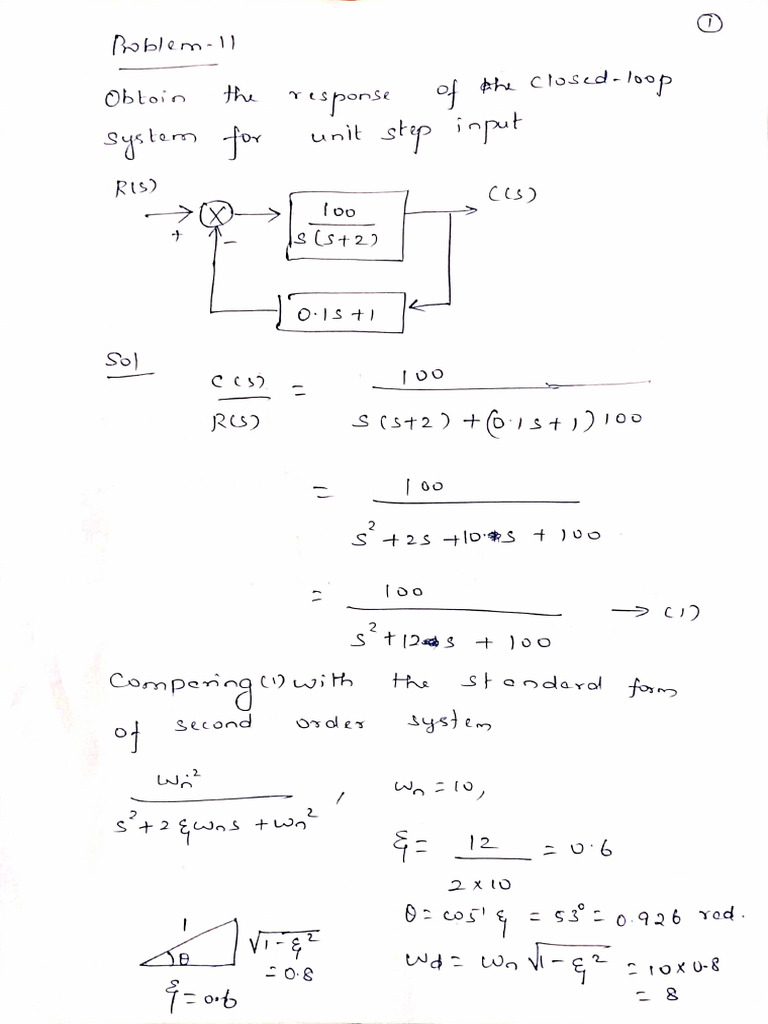 1
Problem-11
Obtain the response of the closed-loop
system for unit step input
R(s)
C(s)
+
-
100
s(s+2)
0.1s+1
Sol
C(s) / R(s) = 100 / s(s+2) + (0.1s+1)100
= 100 / s² + 2s + 10s + 100
= 100 / s² + 12s + 100 → (1)
Comparing (1) with the standard form
of second order system
ωn² / s² + 2ξωns + ωn² , ωn = 10,
ξ = 12 / 2×10 = 0.6
θ = cos⁻¹ξ = 53° = 0.926 rad.
ωd = ωn √1-ξ² = 10×0.8
= 8
1
θ
√1-ξ²
= 0.8
ξ = 0.6